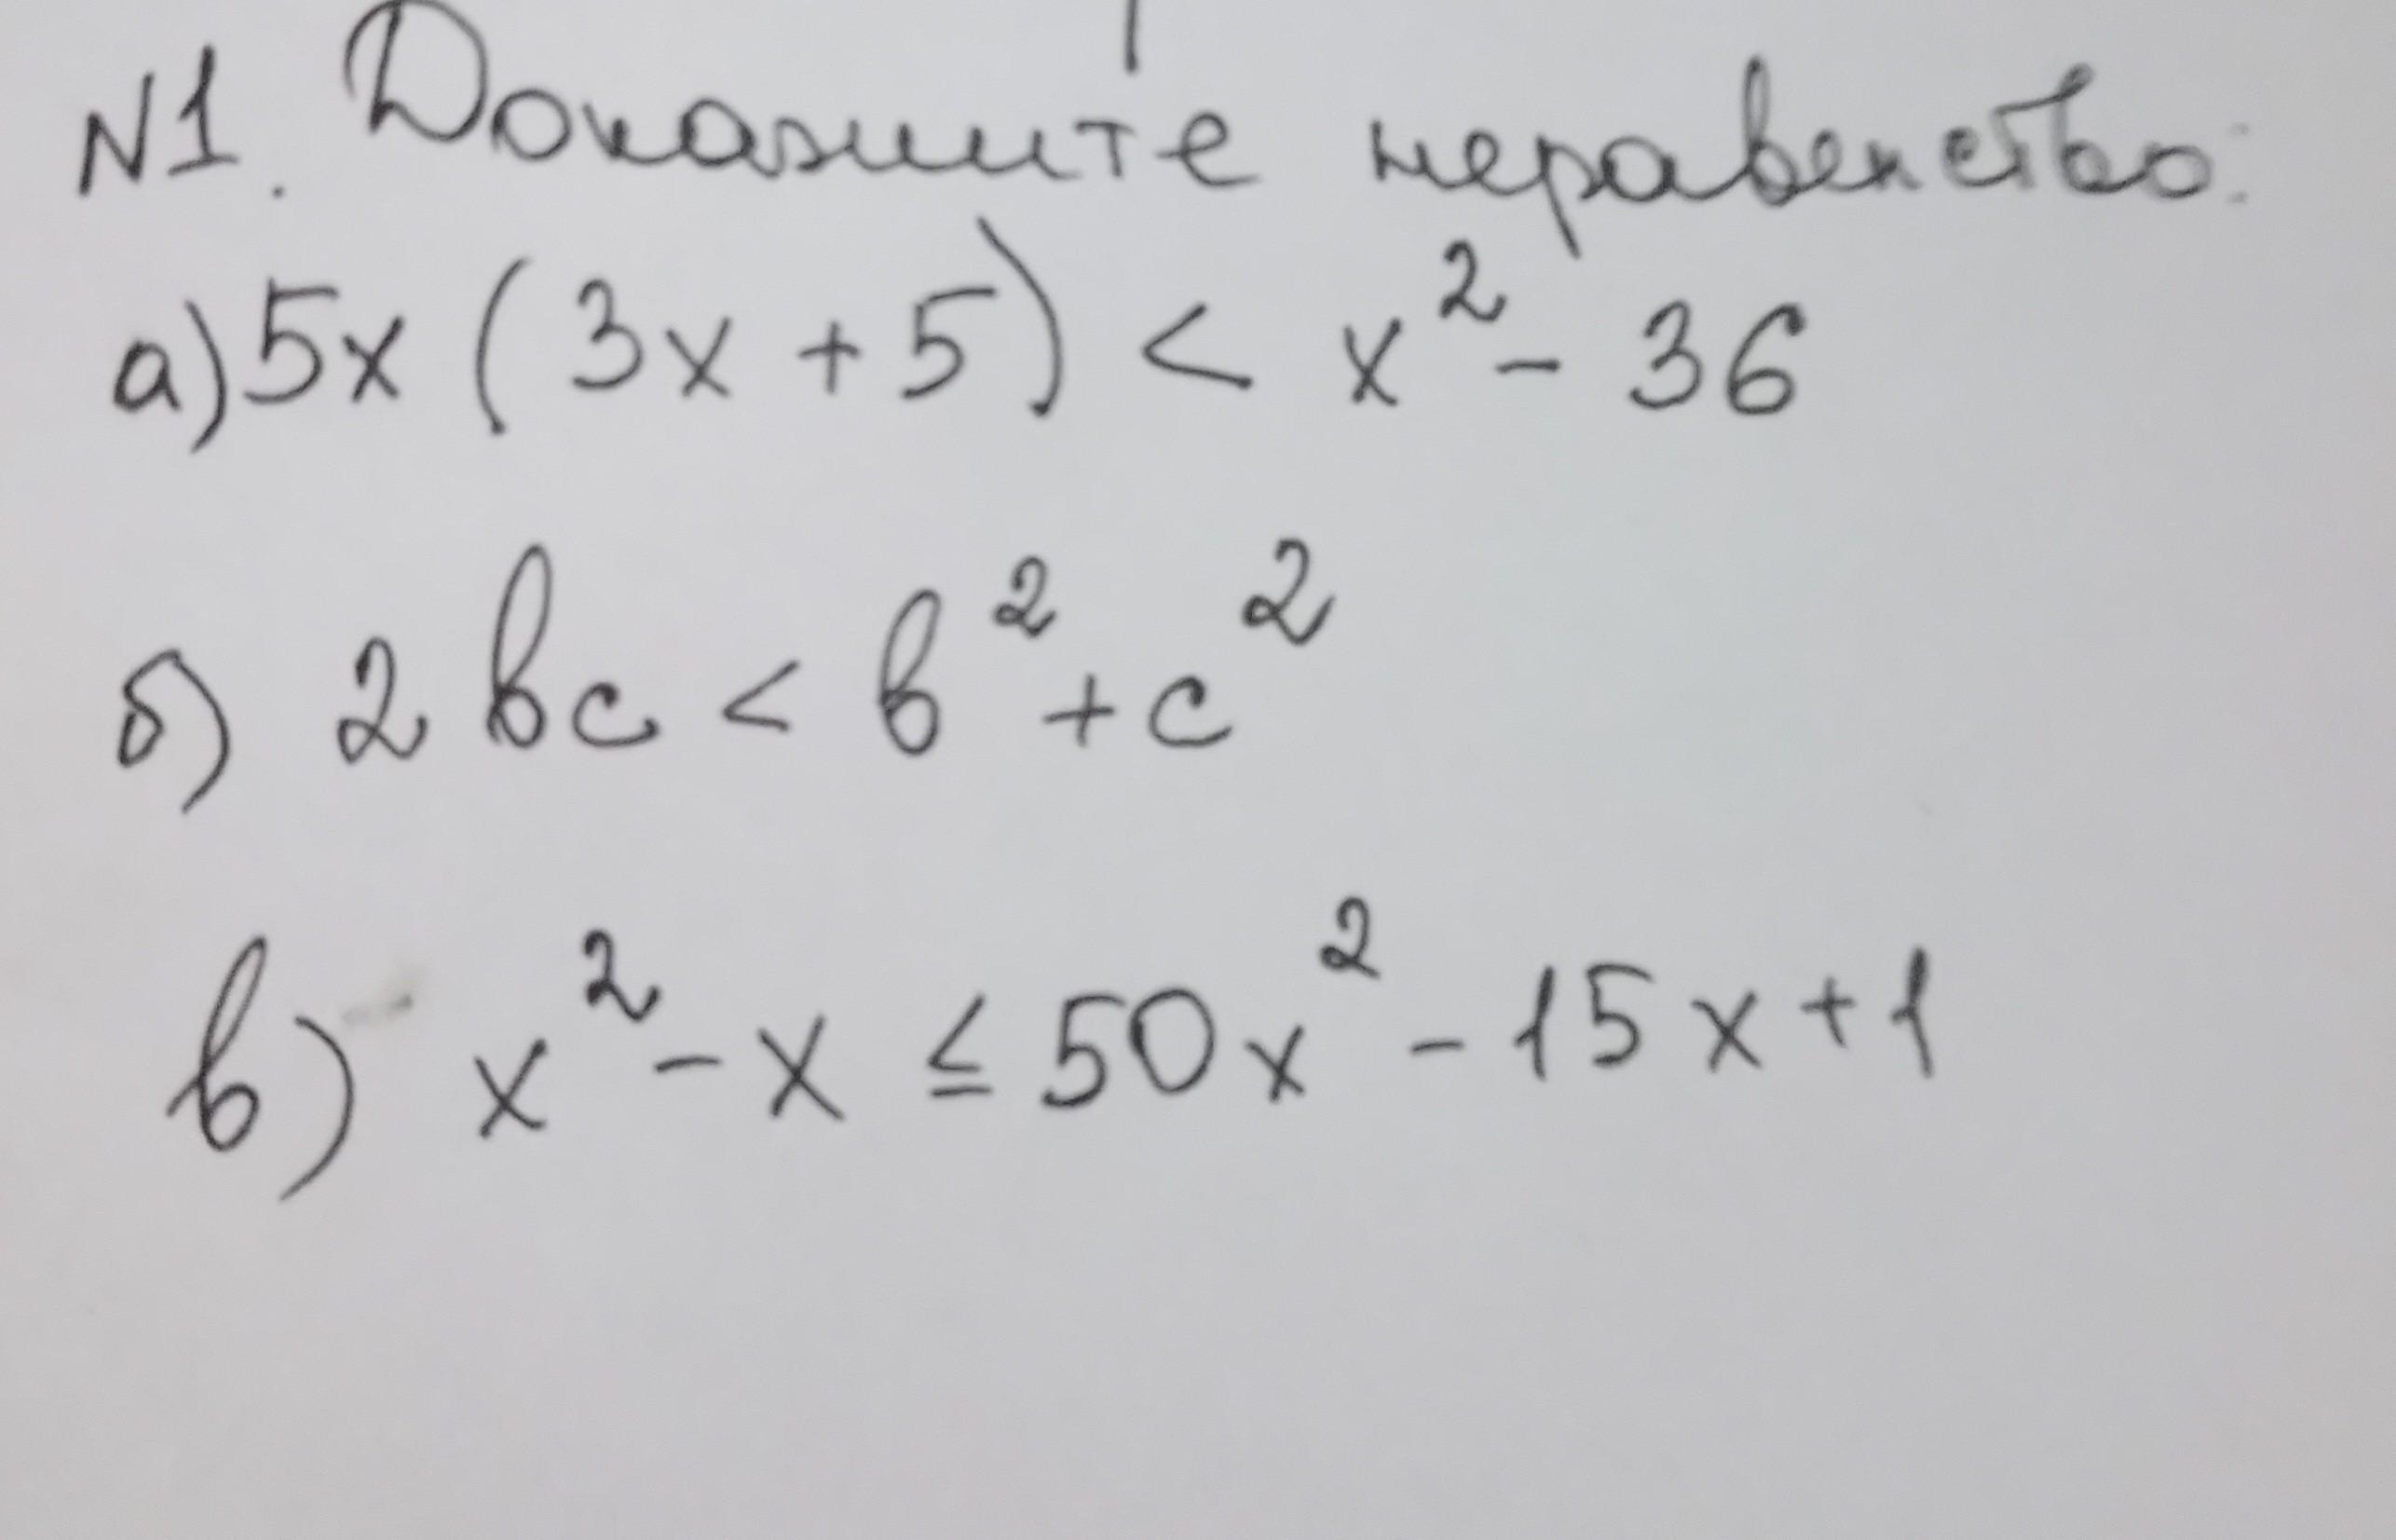 N1. Докажите неравенство:
а) 5x (3x + 5) < x² - 36
б) 2bc < b² + c²
в) x² - x ≤ 50x² - 15x + 1